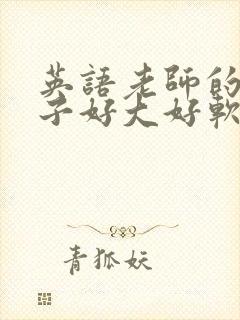 英語老師的
子好大好軟
青狐妖